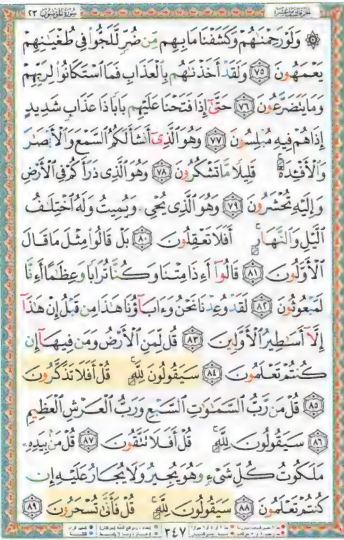 الجزء الثامن عشر سورة المؤمنون ٢٣
۞ وَلَوْ رَحِمْنَٰهُمْ وَكَشَفْنَا مَا بِهِم مِّن ضُرٍّ لَّلَجُّوا۟ فِى طُغْيَٰنِهِمْ
يَعْمَهُونَ ٧٥ وَلَقَدْ أَخَذْنَٰهُم بِٱلْعَذَابِ فَمَا ٱسْتَكَانُوا۟ لِرَبِّهِمْ
وَمَا يَتَضَرَّعُونَ ٧٦ حَتَّىٰٓ إِذَا فَتَحْنَا عَلَيْهِم بَابًا ذَا عَذَابٍ شَدِيدٍ
إِذَا هُمْ فِيهِ مُبْلِسُونَ ٧٧ وَهُوَ ٱلَّذِىٓ أَنشَأَ لَكُمُ ٱلسَّمْعَ وَٱلْأَبْصَٰرَ
وَٱلْأَفْـِٔدَةَ ۚ قَلِيلًا مَّا تَشْكُرُونَ ٧٨ وَهُوَ ٱلَّذِى ذَرَأَكُمْ فِى ٱلْأَرْضِ
وَإِلَيْهِ تُحْشَرُونَ ٧٩ وَهُوَ ٱلَّذِى يُحْىِۦ وَيُمِيتُ وَلَهُ ٱخْتِلَٰفُ
ٱلَّيْلِ وَٱلنَّهَارِ ۚ أَفَلَا تَعْقِلُونَ ٨٠ بَلْ قَالُوا۟ مِثْلَ مَا قَالَ
ٱلْأَوَّلُونَ ٨١ قَالُوٓا۟ أَءِذَا مِتْنَا وَكُنَّا تُرَابًا وَعِظَٰمًا أَءِنَّا
لَمَبْعُوثُونَ ٨٢ لَقَدْ وُعِدْنَا نَحْنُ وَءَابَآؤُنَا هَٰذَا مِن قَبْلُ إِنْ هَٰذَآ
إِلَّآ أَسَٰطِيرُ ٱلْأَوَّلِينَ ٨٣ قُل لِّمَنِ ٱلْأَرْضُ وَمَن فِيهَآ إِن
كُنتُمْ تَعْلَمُونَ ٨٤ سَيَقُولُونَ لِلَّهِ ۚ قُلْ أَفَلَا تَذَكَّرُونَ
٨٥ قُلْ مَن رَّبُّ ٱلسَّمَٰوَٰتِ ٱلسَّبْعِ وَرَبُّ ٱلْعَرْشِ ٱلْعَظِيمِ
٨٦ سَيَقُولُونَ لِلَّهِ ۚ قُلْ أَفَلَا تَتَّقُونَ ٨٧ قُلْ مَنۢ بِيَدِهِۦ
مَلَكُوتُ كُلِّ شَىْءٍ وَهُوَ يُجِيرُ وَلَا يُجَارُ عَلَيْهِ إِن
كُنتُمْ تَعْلَمُونَ ٨٨ سَيَقُولُونَ لِلَّهِ ۚ قُلْ فَأَنَّىٰ تُسْحَرُونَ ٨٩
٣٤٧